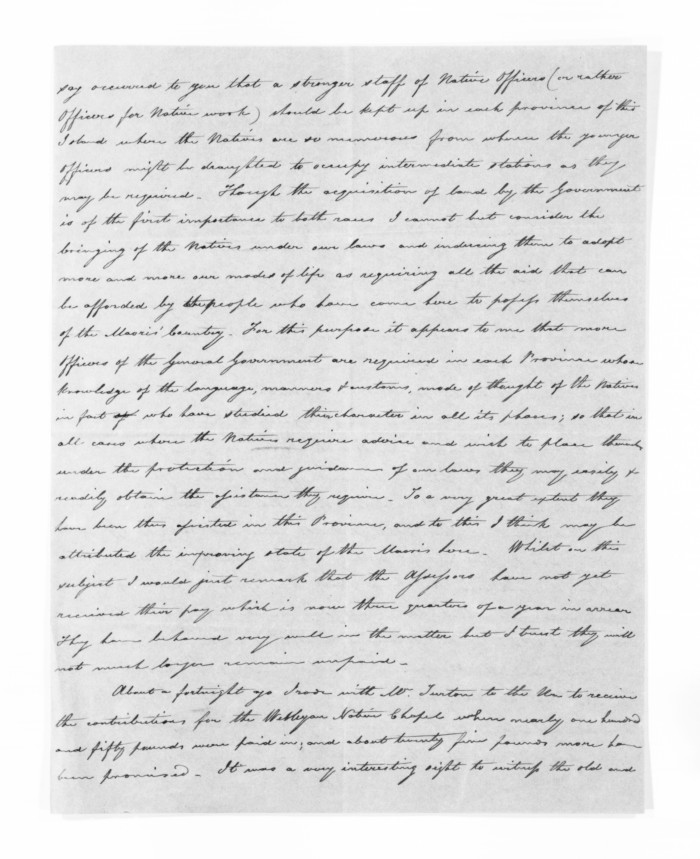 say occurred to you that a stronger staff of Native Officers (or rather
Officers for Native work) should be kept up in each province of this
Island where the Natives are so numerous from whence the younger
Officers might be draughted to occupy intermediate stations as they
may be required. Though the acquisition of land by the Government
is of the first importance to both races I cannot but consider the
bringing of the Natives under our laws and inducing them to adopt
more and more our modes of life as requiring all the aid that can
be afforded by the people who have come here to possess themselves
of the Maoris' Country. For this purpose it appears to me that more
Officers of the General Government are required in each Province whose
knowledge of the language, manners & customs, mode of thought of the Natives
in fact who have studied their character in all its phases; so that in
all cases where the Natives require advice and wish to place themselves
under the protection and guidance of our laws they may easily &
readily obtain the assistance they require. To a very great extent they
have been thus assisted in this Province, and to this I think may be
attributed the improving state of the Maoris here. Whilst on this
subject I would just remark that the Assessors have not yet
received their pay which is now three quarters of a year in arrear
They have behaved very well in the matter but I trust they will
not much longer remain unpaid.
About a fortnight ago I rode with Mr. Turton to the Umu to receive
the contributions for the Wesleyan Native Chapel when nearly one hundred
and fifty pounds were paid in; and about twenty five pounds more have
been promised. It was a very interesting sight to witness the old and